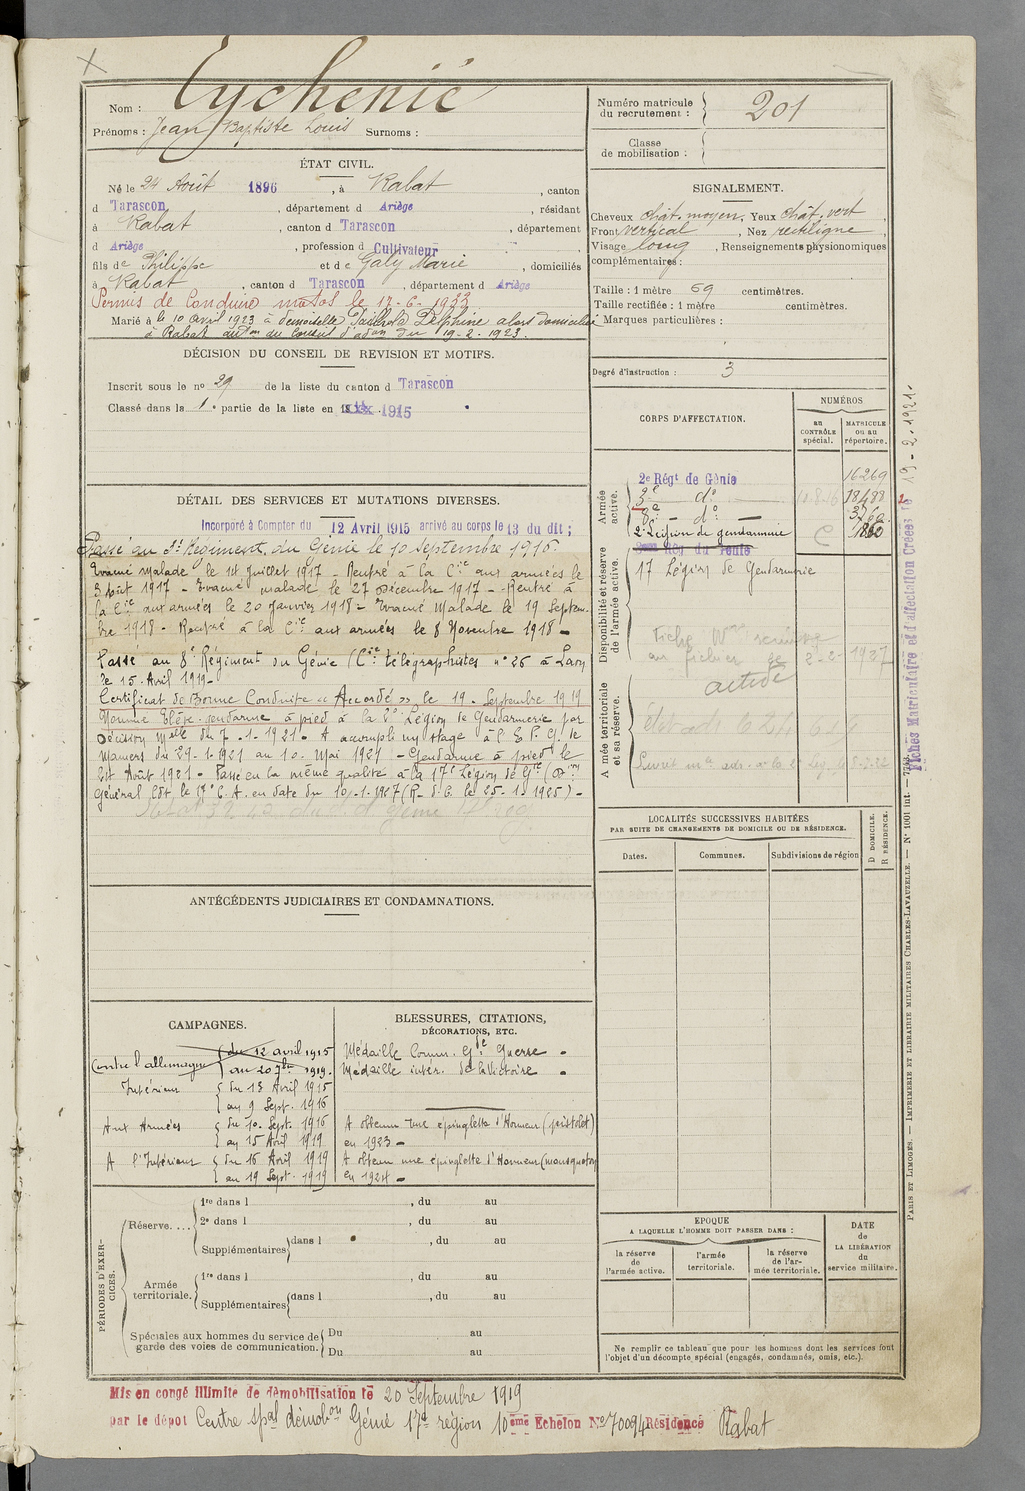 Nom : Eychenié
Prénoms : Jean Baptiste Louis Surnoms :
Numéro matricule du recrutement : 201
Classe de mobilisation :
ÉTAT CIVIL.
Né le 24 Août 1896, à Rabat, canton
d Tarascon, département d Ariège, résidant
à Rabat, canton d Tarascon, département
d Ariège, profession d Cultivateur
fils de Philippe et de Galy Marie, domiciliés
à Rabat, canton d Tarascon, département d Ariège
Permis de Conduire motos le 17-6-1933
Marié à le 10 avril 1923 à demoiselle Delphine alors domiciliée
à Rabat du Conseil d'adon du 19-2-1923.
SIGNALEMENT.
Cheveux chât. moyen, Yeux chât. vert,
Front vertical, Nez rectiligne,
Visage long, Renseignements physionomiques
complémentaires :
Taille : 1 mètre 69 centimètres.
Taille rectifiée : 1 mètre centimètres.
Marques particulières :
Degré d'instruction : 3
DÉCISION DU CONSEIL DE REVISION ET MOTIFS.
Inscrit sous le no 29 de la liste du canton d Tarascon
Classé dans la 1e partie de la liste en 1915
DÉTAIL DES SERVICES ET MUTATIONS DIVERSES.
Incorporé à Compter du 12 Avril 1915 arrivé au corps le 13 du dit ;
Passé au 3e Régiment du Génie le 10 Septembre 1916.
Evacué malade le 14 Juillet 1917 - Rentré à la Cie aux armées le
3 Août 1917 - Evacué malade le 27 Décembre 1917 - Rentré à
la Cie aux armées le 20 Janvier 1918 - Evacué Malade le 19 Septem-
bre 1918 - Rentré à la Cie aux armées le 8 Novembre 1918 -
Passé au 8e Régiment du Génie (Cie télégraphistes no 26 à
le 15 Avril 1919 -
Certificat de Bonne Conduite « Accordé » le 19 Septembre 1919
Nommé Elève-gendarme à pied à la 2e Légion de Gendarmerie par
Décision Mlle du 7-1-1921 - A accompli un stage à l'E.P.G. de
Mamers du 29-1-1921 au 10 Mai 1921 - Gendarme à pied le
Août 1921 - Passé en la même qualité à la 17e Légion de Gie
Général Cdt le 17e C.A. en date du 10-1-1927 (R. du C. le 25-1-1925) -
CORPS D'AFFECTATION.
NUMÉROS
au CONTRÔLE spécial.
MATRICULE ou au répertoire.
Armée active.
2e Régt de Génie 16269
3e do 18488
8e - do -
2e Légion de gendarmerie 1860
Disponibilité et réserve de l'armée active.
17 Légion de Gendarmerie
active
Armée territoriale et sa réserve.
LOCALITÉS SUCCESSIVES HABITÉES
PAR SUITE DE CHANGEMENTS DE DOMICILE OU DE RÉSIDENCE.
Dates. Communes. Subdivisions de région D DOMICILE. R RÉSIDENCE.
ANTÉCÉDENTS JUDICIAIRES ET CONDAMNATIONS.
CAMPAGNES.
Contre l'allemagne du 12 avril 1915
au 20 7bre 1919.
Intérieur du 13 Avril 1915
au 9 Sept. 1916
Aux Armées du 10 Sept. 1916
au 15 Avril 1919
A l'Intérieur du 16 Avril 1919
au 19 Sept. 1919
BLESSURES, CITATIONS, DÉCORATIONS, ETC.
Médaille Comm. Gde Guerre -
Médaille inter. de la Victoire -
A obtenu une épinglette d'Honneur (pistolet)
en 1923 -
A obtenu une épinglette d'Honneur (mousqueton)
en 1924 -
PÉRIODES D'EXERCICES.
Réserve.... 1re dans l , du au
2e dans l , du au
Supplémentaires dans l , du au
Armée territoriale. 1re dans l , du au
Supplémentaires dans l , du au
Spéciales aux hommes du service de garde des voies de communication. Du au
Du au
EPOQUE
A LAQUELLE L'HOMME DOIT PASSER DANS :
la réserve de l'armée active.
l'armée territoriale.
la réserve de l'armée territoriale.
DATE de LA LIBÉRATION du service militaire.
Ne remplir ce tableau que pour les hommes dont les services font
l'objet d'un décompte spécial (engagés, condamnés, omis, etc.).
Mis en congé illimité de démobilisation le 20 Septembre 1919
par le dépôt Centre spal démobon Génie 17e région 10ème Echelon No 70094 Résidence Rabat
Fiches Matriculaire et d'affectation Créées le 19-2-1921.
PARIS ET LIMOGES. — IMPRIMERIE ET LIBRAIRIE MILITAIRES CHARLES-LAVAUZELLE. — No 1001 int.